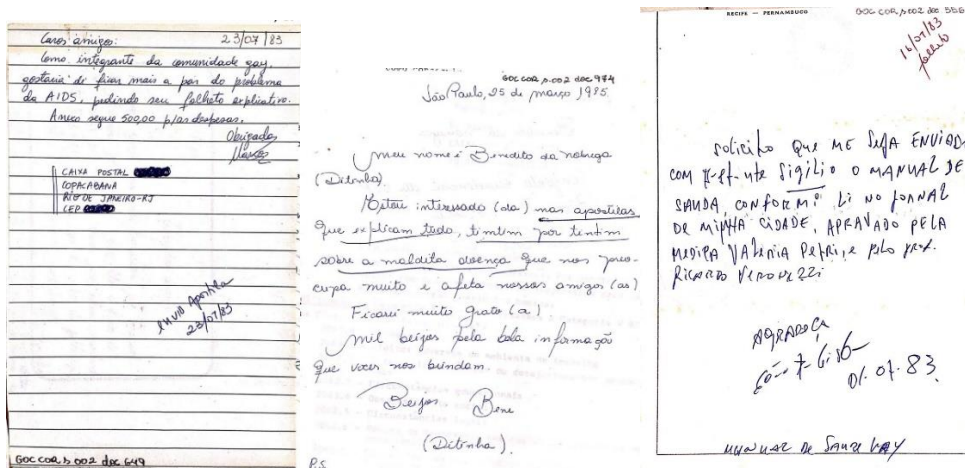 Caros amigos: 23/07/83
Como integrante da comunidade gay,
gostaria de ficar mais a par do problema
da AIDS, pedindo seu folheto explicativo.
Anexo segue 500,00 p/as despesas.
Obrigado
CAIXA POSTAL
COPACABANA
RIO DE JANEIRO-RJ
CEP
envio Apostila
23/07/83
GOC COR, P.002 doc 649
GOC COR, P.002 doc 974
São Paulo, 25 de março 1985
Meu nome é Benedito da nobrega
(Ditinha)
Estou interessado (da) nas apostilas
que explicam tudo, timtim por timtim
sobre a maldita doença que nos preo-
cupa muito e afeta nossos amigos (as)
Ficarei muito grato (a)
Mil beijos pela bela informação
que voces nos brindam.
Beijos Bene
(Ditinha).
P.S
RECIFE — PERNAMBUCO
GOC COR, P.002 doc
16/07/83
folheto
Solicito QUE ME SEJA ENVIADO
COM Sigilio O MANUAL DE
SAUDA, CONFORMI LI NO JORNAL
DE MINHA CIDADE, APRAVADO PELA
MEDICA VALERIA PETRI, e pelo prof.
RICARDO VERONEZZI
AGRADEÇA
01.07.83
MANUAL DE SAUDE GAY